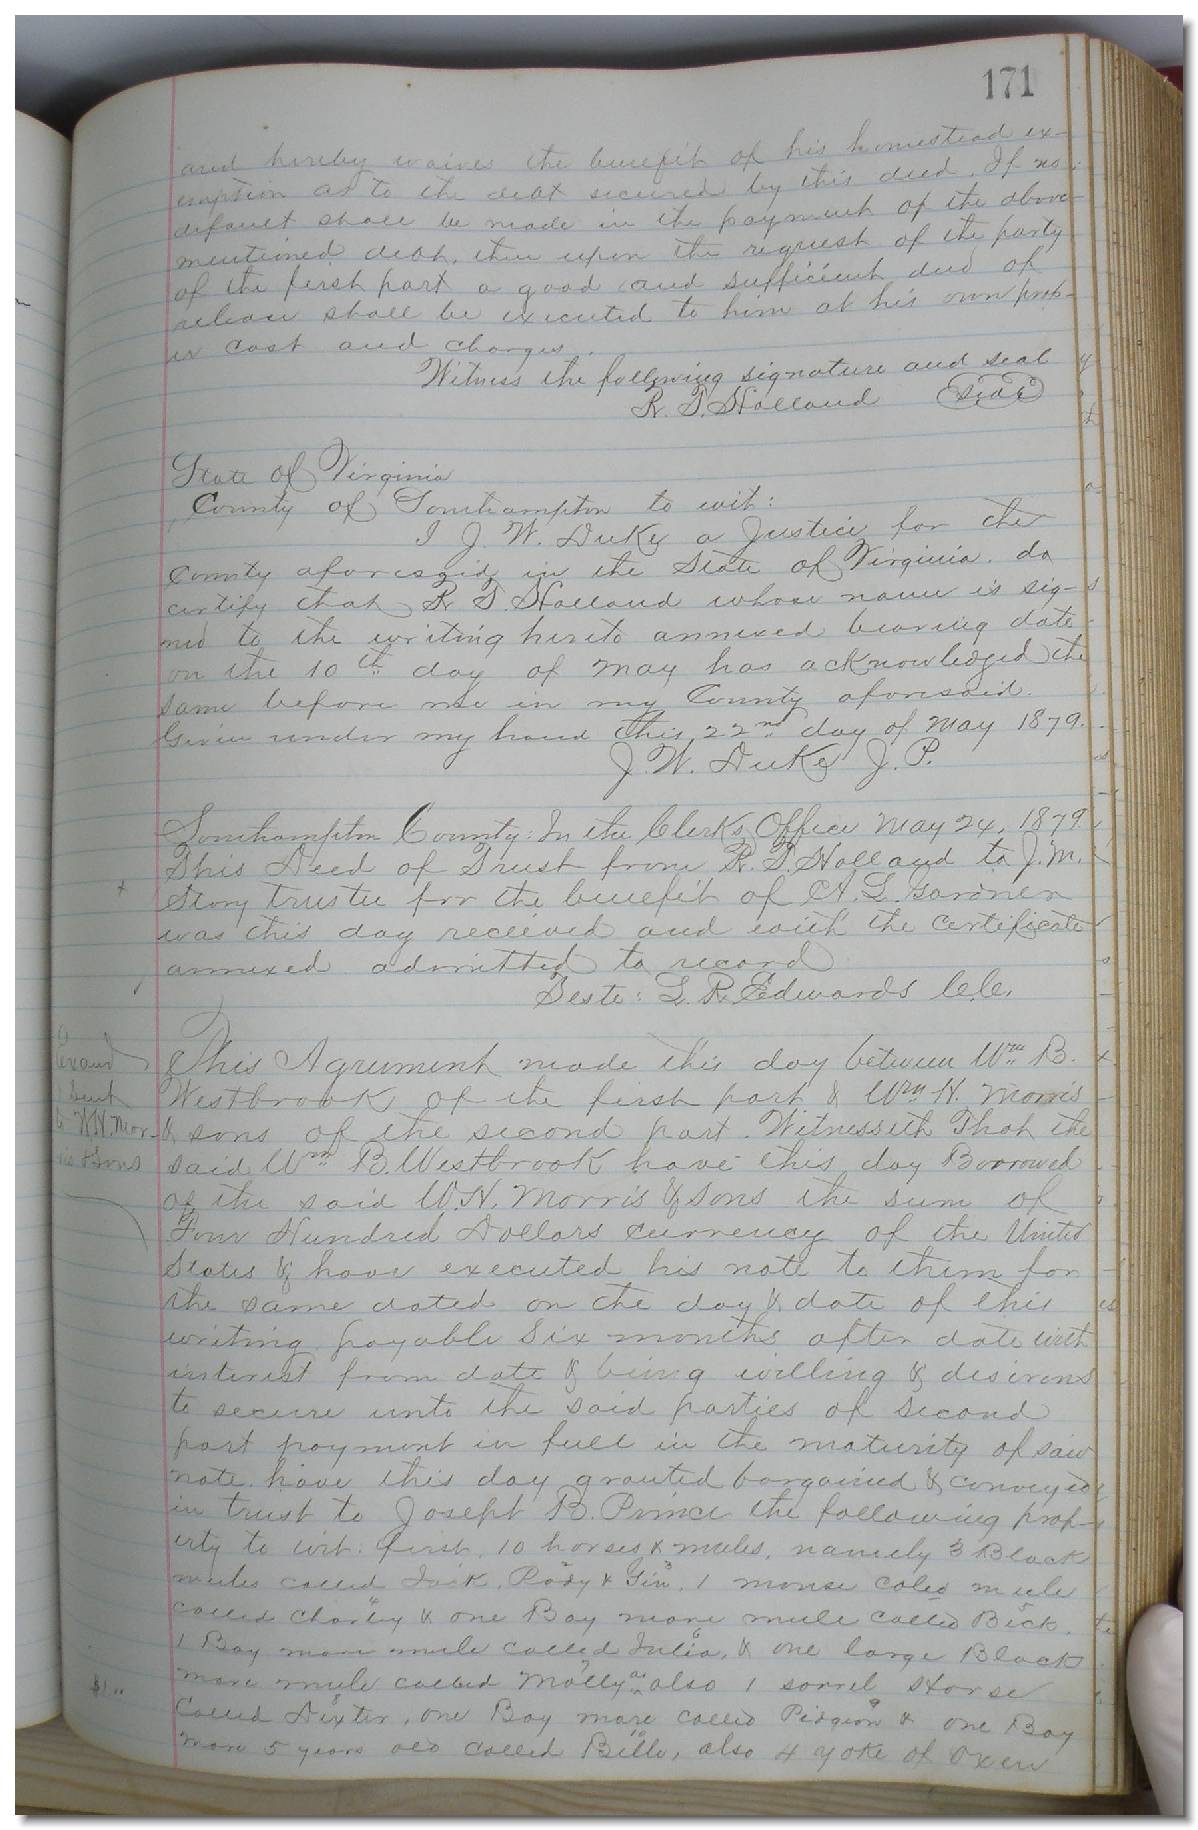 171
and hereby waives the benefit of his homestead ex-
emption as to the debt secured by this deed. If no
default shall be made in the payment of the above
mentioned debt, then upon the request of the party
of the first part a good and sufficient deed of
release shall be executed to him at his own prop-
er cost and charges.
Witness the following signature and seal
R. T. Holland Seal
State of Virginia
County of Southampton to wit:
I J. W. Duke a Justice for the
County aforesaid in the State of Virginia. do
certify that R. T. Holland whose name is sig-
ned to the writing hereto annexed bearing date
on the 10th day of May has acknowledged the
same before me in my County aforesaid.
Given under my hand this 22nd day of May 1879.
J. W. Duke J. P.
Southampton County: In the Clerks Office May 24, 1879
This Deed of Trust from R. T. Holland to J. M.
Story trustee for the benefit of A. L. Gardner
was this day received and with the certificate
annexed admitted to record
Teste: L. R. Edwards C.C.
& Sent
to W.H. Mor-
ris & Sons
This Agreement made this day between Wm B.
Westbrook of the first part & Wm H. Morris
& sons of the second part. Witnesseth That the
said Wm B. Westbrook have this day Borrowed
of the said W. H. Morris & sons the sum of
Four Hundred Dollars currency of the United
States & have executed his note to them for
the same dated on the day & date of this
writing payable Six months after date with
interest from date & being willing & desirous
to secure unto the said parties of second
part payment in full in the maturity of said
note have this day granted bargained & conveyed
in trust to Joseph B. Prince the following prop-
erty to wit: first, 10 horses & mules, namely 3 Black
mules called Jack, Rody & Gin, 1 mouse colored mule
called Charley & one Bay mare mule called Beck,
1 Bay mare mule called Julia, & one large Black
mare mule called Molly also 1 sorrel Horse
Called Dexter, one Bay mare called Pidgeon & one Bay
mare 5 years old called Bille, also 4 yoke of Oxen
$1.00